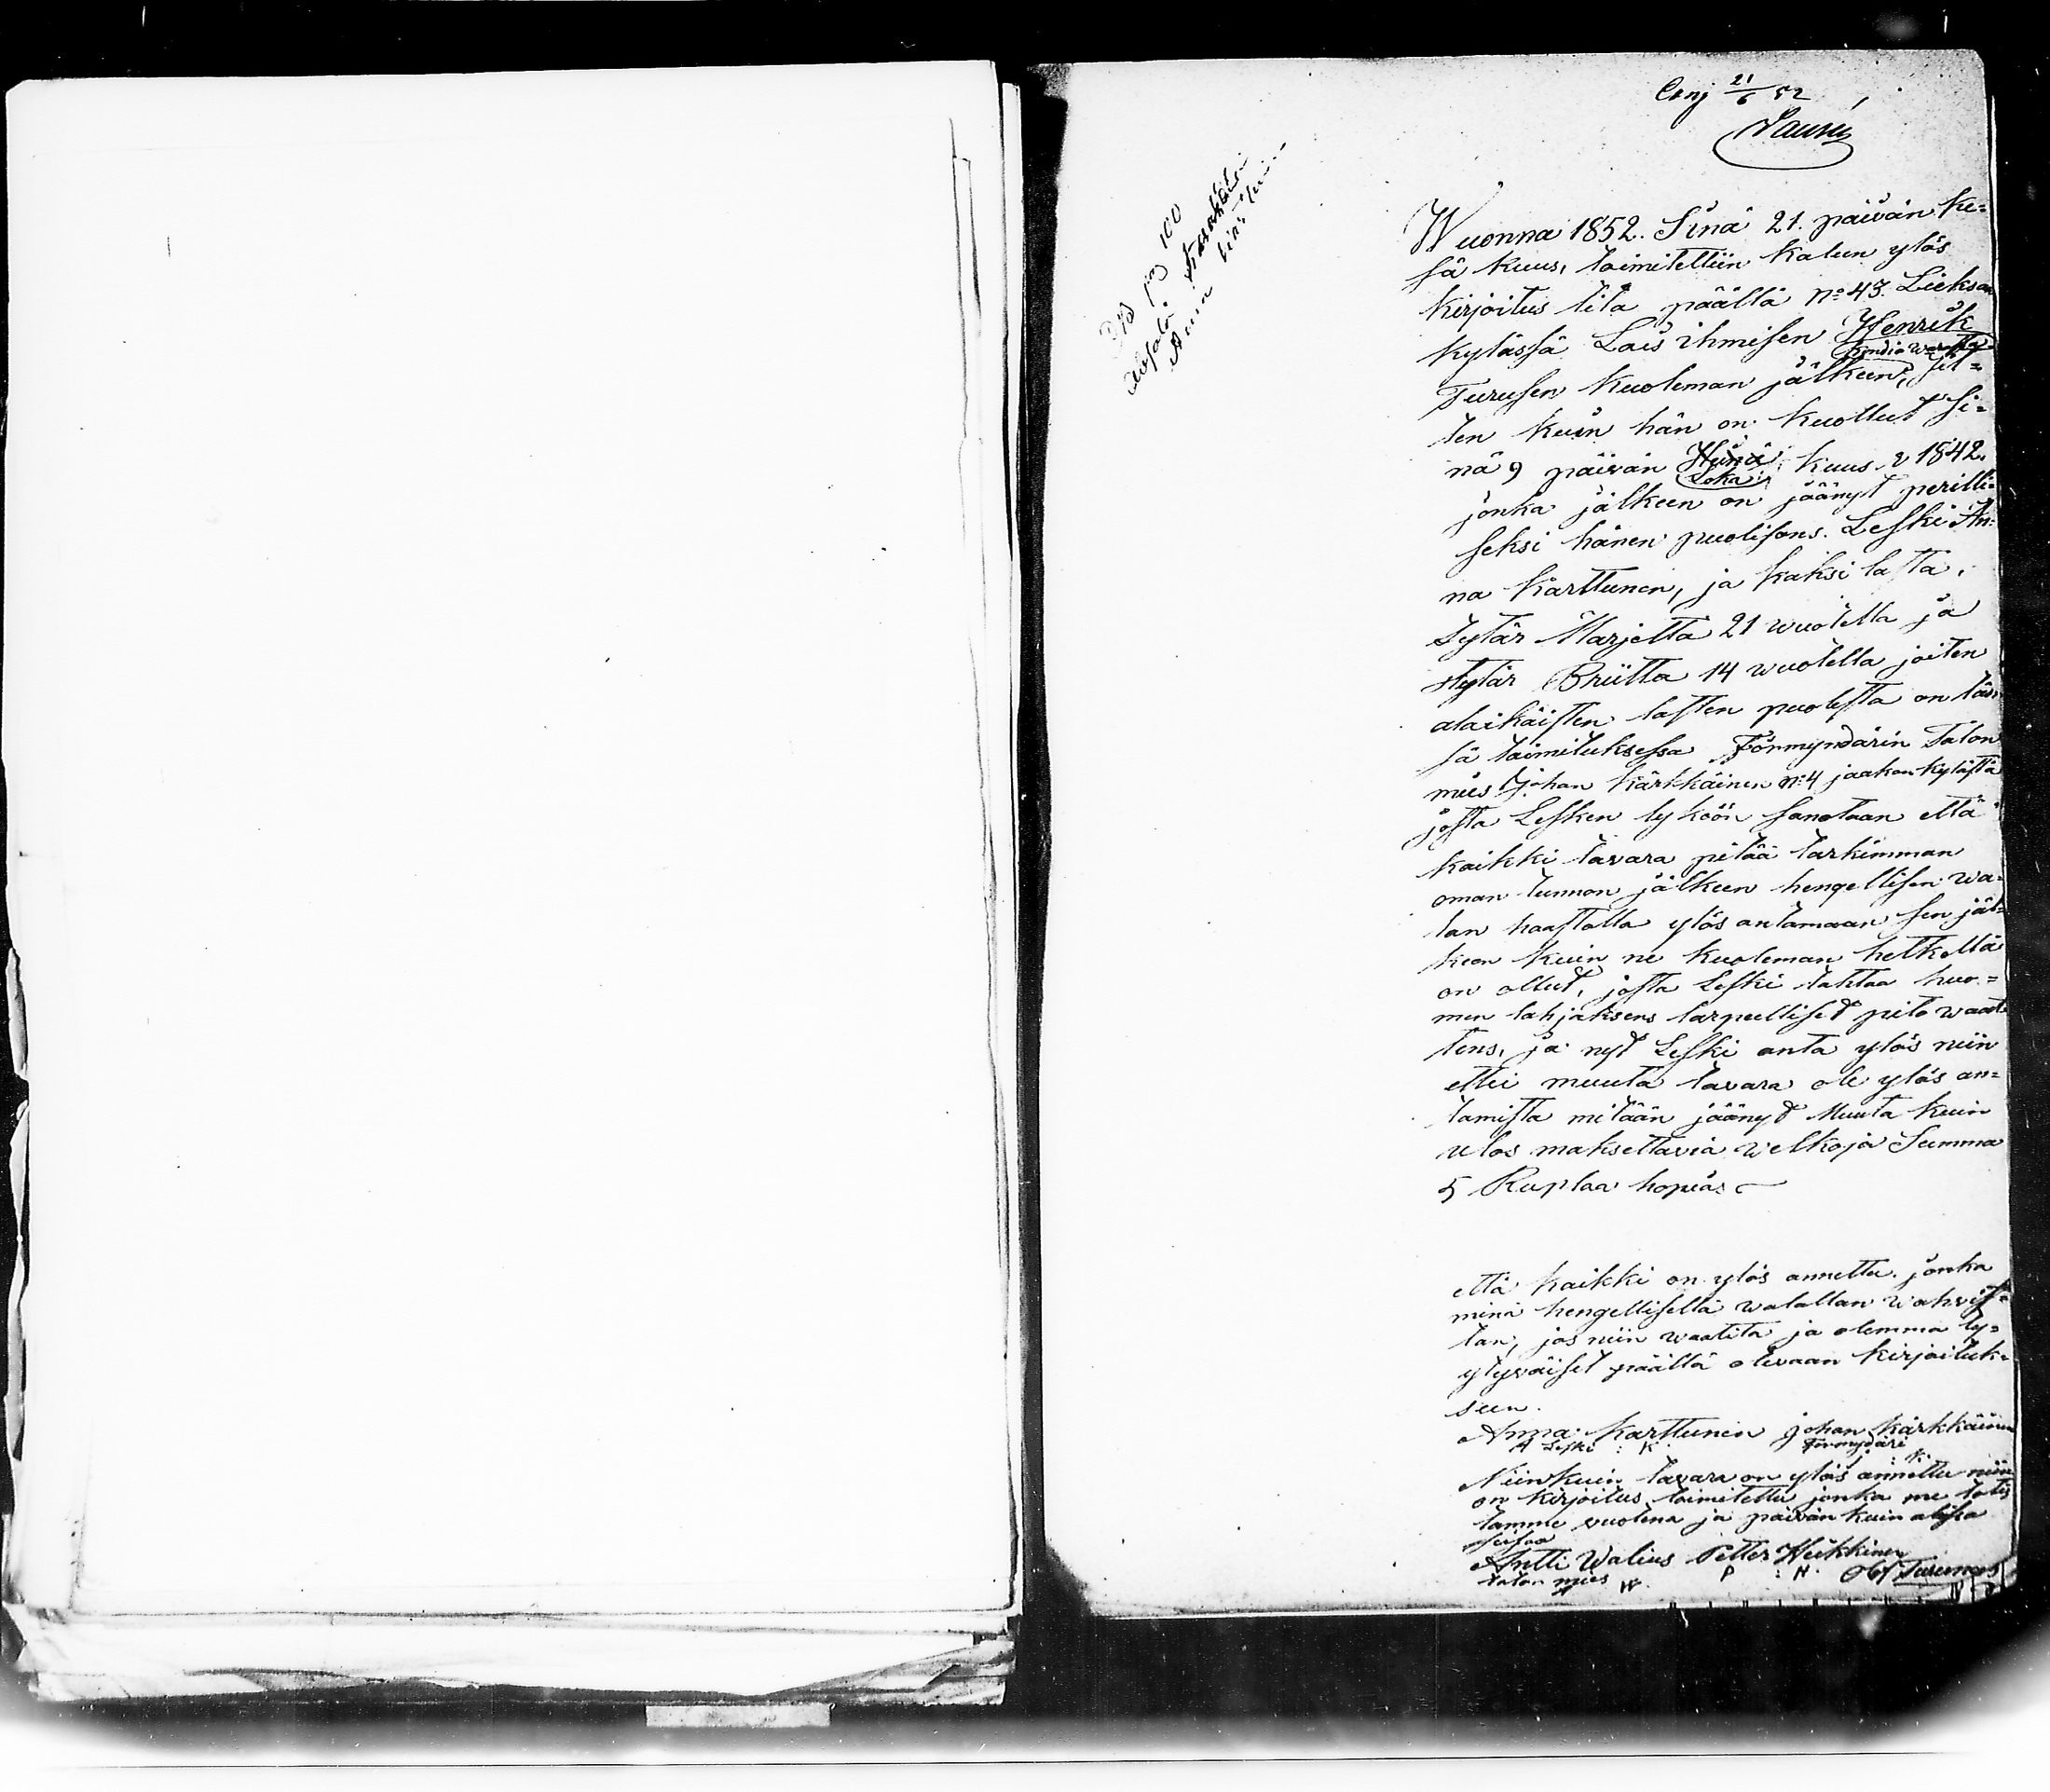 21/6 52
Wuonna 1852. Sinä 21. päivän ke=
sä kuus, toimitettiin kalun ylös
kirjoitus tila päällä No 43. Lieksan
kylässä Lois ihmisen Henrik
Turusen kuoleman jälkeen, sit=
ten kuin hän on kuollut si=
nä 9 päivän Heinä kuus v 1842.
Loka
jonka jälkeen on jäänyt perilli=
seksi hänen puolisons. Leski An=
na Karttunen, ja kaksi lasta,
tytär Marjetta 21 wuotella ja
tytär Briitta 14 wuotella joiten
alaikäisten lasten puolesta on täs=
sä toimituksessa Förmyndärin Talon
mies Johan Kärkkäinen No 4 jaakon kylästä
josta Lesken tyköön sanotaan että
kaikki tavara pitää tarkimman
oman tunnon jälkeen hengellisen wa=
lan haastolla ylös antamaan sen jäl=
keen kuin ne kuoleman hetkellä
on ollut, josta Leski tahtaa huo=
men lahjaksens tarpeelliset pito waat=
tens, ja nyt Leski anta ylös niin
ettei muuta tavara ole ylös an=
tamista mitään jäänyt Muuta kuin
ulos maksettavia welkoja Summa
5 Ruplaa hopias
että kaikki on ylös annettu. jonka
minä hengellisellä walallan wahvis=
tan, jos niin waatita ja olemma ty=
ytyväiset päällä olevaan kirjoituk=
seen.
Anna Karttunen Johan Kärkkäinen
A Leski K Förmydäri K.
Niinkuin tavara on ylös annettu niin
on kirjoitus toimitettu jonka me totis
tamme vuotena ja päivän kuin alussa
seisoo
Antti Walius Petter Heikkinen
talon mies W. P H. Olof Turunen